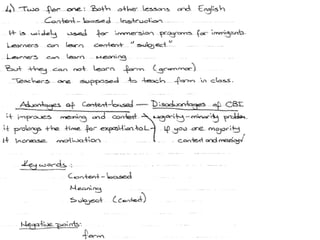 4) Two for one: Both other lessons and English
Content-based Instruction
It is widely used for immersion programs for immigrants.
Learners can learn content "subject"
Learners can learn Meaning
But they can not learn form (grammar)
Teachers are supposed to teach form in class.
Advantages of Content-based — Disadvantages of CBI
it improves meaning and content → Majority-minority problem.
it prolongs the time for exposition to L → if you are majority
It increase motivation . content and meaning
Keywords:
Content-based
Meaning
Subject (Content)
Negative points:
form